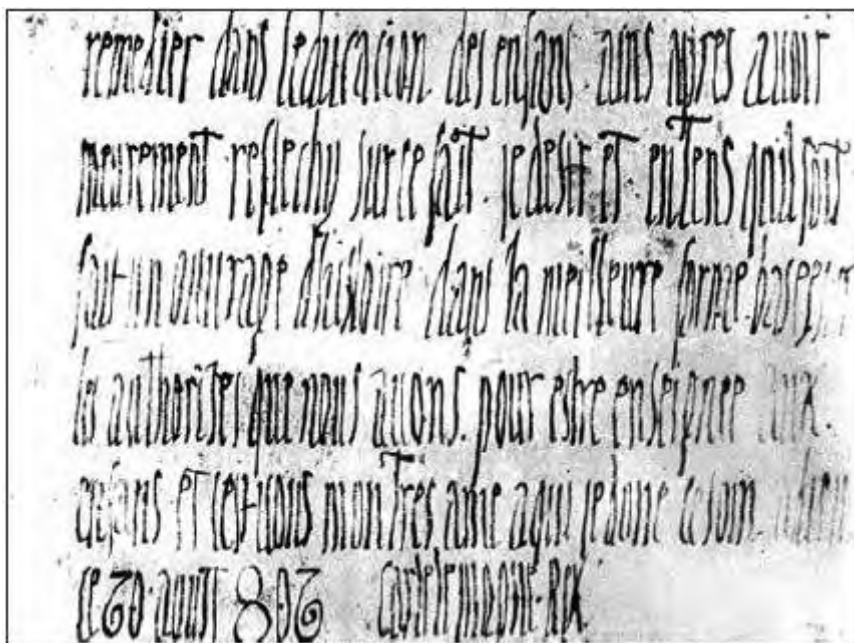 remedier dans leducacion. des enfans. ains apres auoir
meurement. reflechy sur ce fait. je desir et entens quil soit
fait un ouurage dhistoire dans la meilleure forme basee sur
les authorites que nous auons. pour estre enseignee aux.
enfans et cest uous mon tres ame a qui je done ce soin. adieu
ce 20. aoust 802 Carle le maone. Rex.